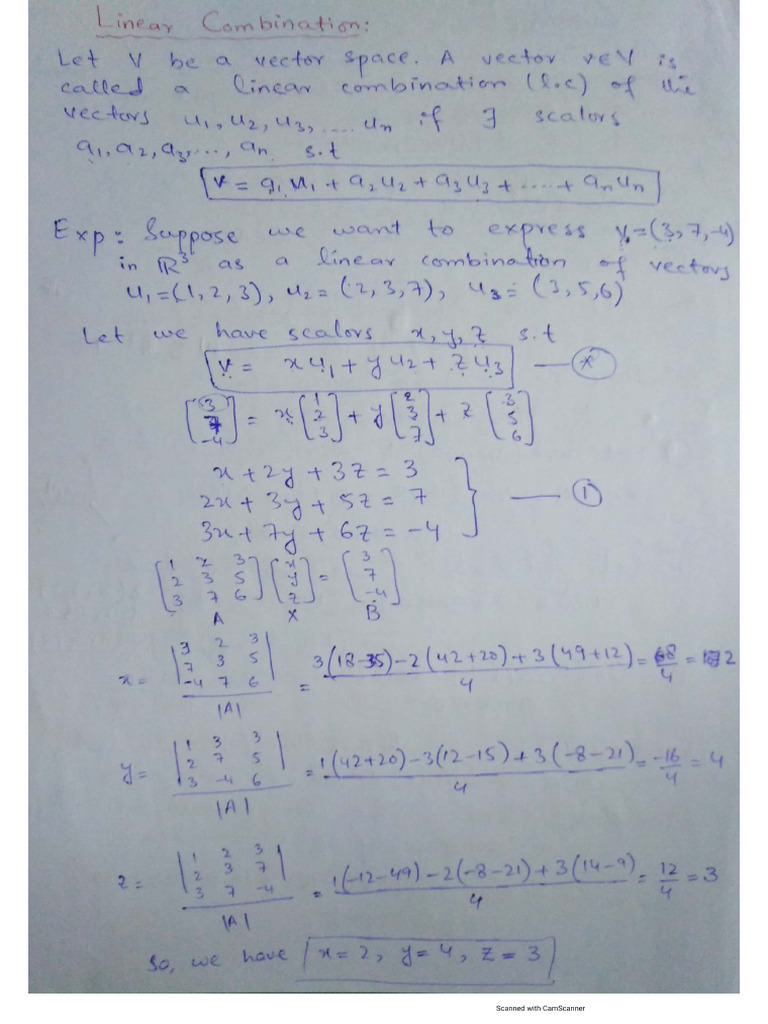 Linear Combination:
Let V be a vector space. A vector v∈V is
called a linear combination (l.c) of the
vectors u₁, u₂, u₃, .... uₙ if ∃ scalors
a₁, a₂, a₃, ..., aₙ s.t
v = a₁u₁ + a₂u₂ + a₃u₃ + ..... + aₙuₙ
Exp: Suppose we want to express v = (3, 7, -4)
in ℝ³ as a linear combination of vectors
u₁ = (1, 2, 3), u₂ = (2, 3, 7), u₃ = (3, 5, 6)
Let we have scalors x, y, z s.t
v = xu₁ + yu₂ + zu₃ — *
[3 7 -4] = x [1 2 3] + y [2 3 7] + z [3 5 6]
x + 2y + 3z = 3
2x + 3y + 5z = 7 } — ①
3x + 7y + 6z = -4
[1 2 3; 2 3 5; 3 7 6] [x y z] = [3 7 -4]
A X B
x = |3 2 3; 7 3 5; -4 7 6| / |A| = 3(18-35) - 2(42+20) + 3(49+12) / 4 = 68/4 = 2
y = |1 3 3; 2 7 5; 3 -4 6| / |A| = 1(42+20) - 3(12-15) + 3(-8-21) / 4 = -16/4 = 4
z = |1 2 3; 2 3 7; 3 7 -4| / |A| = 1(-12-49) - 2(-8-21) + 3(14-9) / 4 = 12/4 = 3
So, we have x = 2, y = 4, z = 3
Scanned with CamScanner